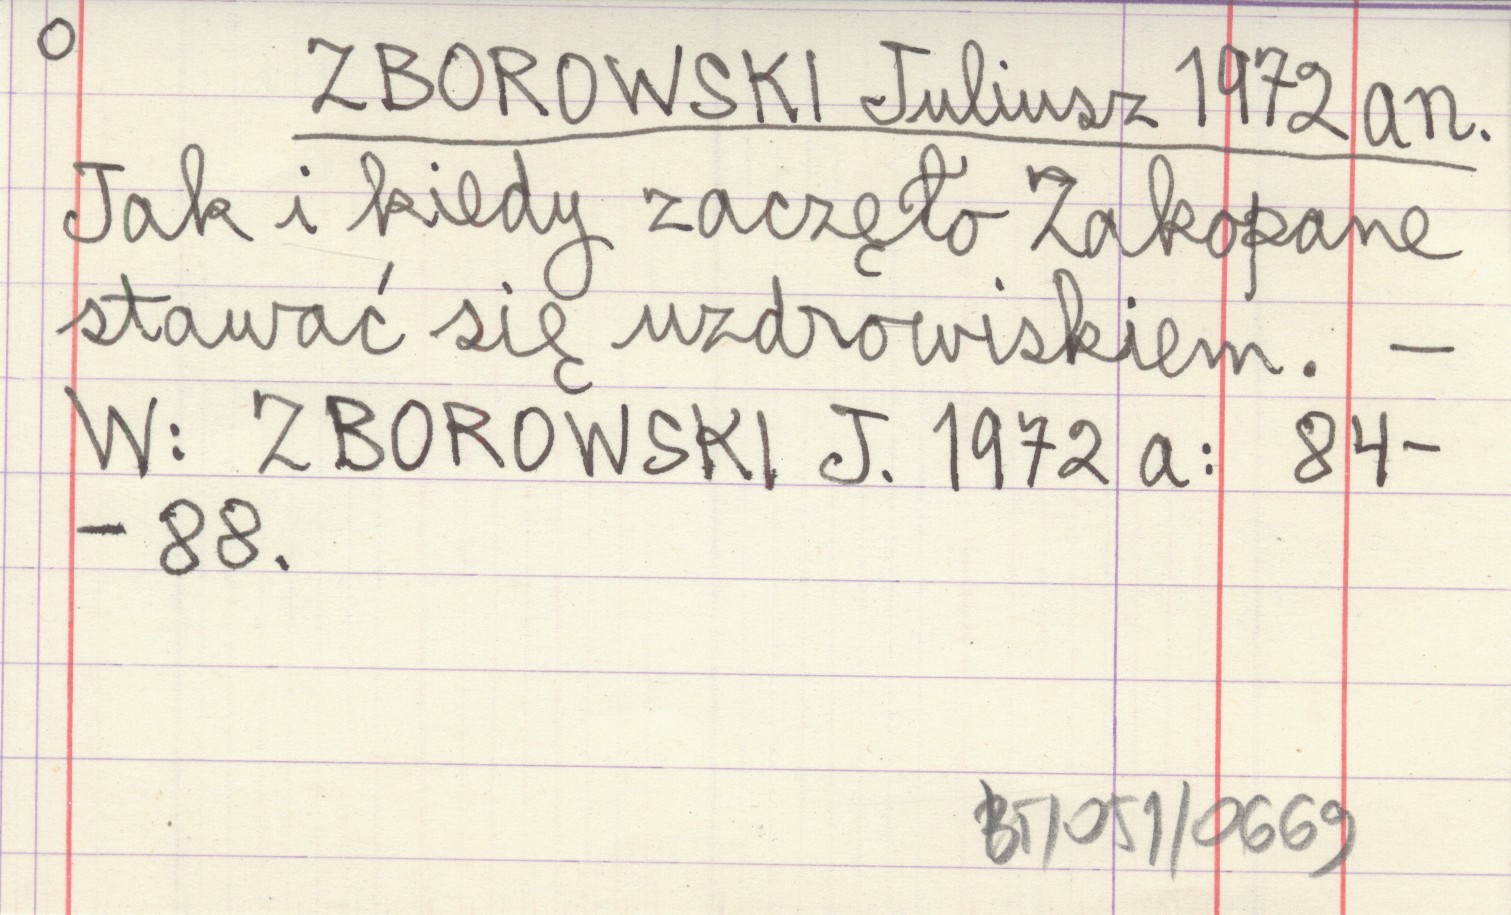 O
ZBOROWSKI Juliusz 1972 an.
Jak i kiedy zaczęło Zakopane
stawać się uzdrowiskiem. —
W: ZBOROWSKI J. 1972 a: 84-
- 88.
BT/051/0669